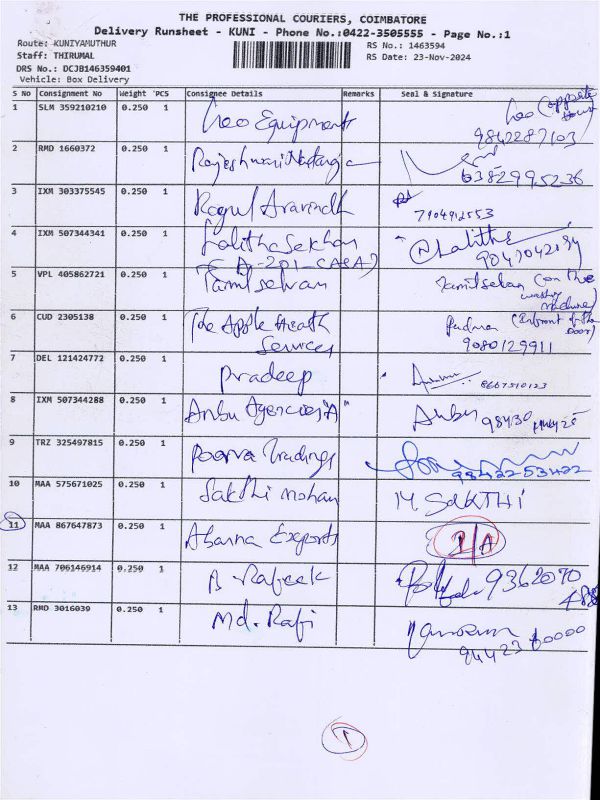 THE PROFESSIONAL COURIERS, COIMBATORE
Delivery Runsheet - KUNI - Phone No.:0422-3505555 - Page No.:1
Route: KUNIYAMUTHUR
RS No.: 1463594
Staff: THIRUMAL
RS Date: 23-Nov-2024
DRS No.: DCJB146359401
Vehicle: Box Delivery
S No Consignment No Weight PCS Consignee Details Remarks Seal & Signature
1 SLM 359210210 0.250 1 Leo Equipments Leo (opposite House)
9842287103
2 RMD 1660372 0.250 1 Rajeshwari 6382995236
3 IXM 303375545 0.250 1 Ragul Aravindh
7904912553
4 IXM 507344341 0.250 1 Lalitha Sekhar Lalitha
A-201-CASA)
5 VPL 405862721 0.250 1 Tamilselvan Tamilselvan (on the washing machine)
6 CUD 2305138 0.250 1 The Apple Health Padma (Infront of the Door)
Services 9080129911
7 DEL 121424772 0.250 1 Pradeep
8 IXM 507344288 0.250 1 Anbu Agencies "A" Anbu 98430
9 TRZ 325497815 0.250 1 Poorva Tradings 9842253422
10 MAA 575671025 0.250 1 Sakthi Mohan M. SAKTHI
11 MAA 867647873 0.250 1 Exports 1/A
12 MAA 706146914 0.250 1 A Rafeek 9362070
488
13 RMD 3016039 0.250 1 Md. Rafi
94423 60000
1